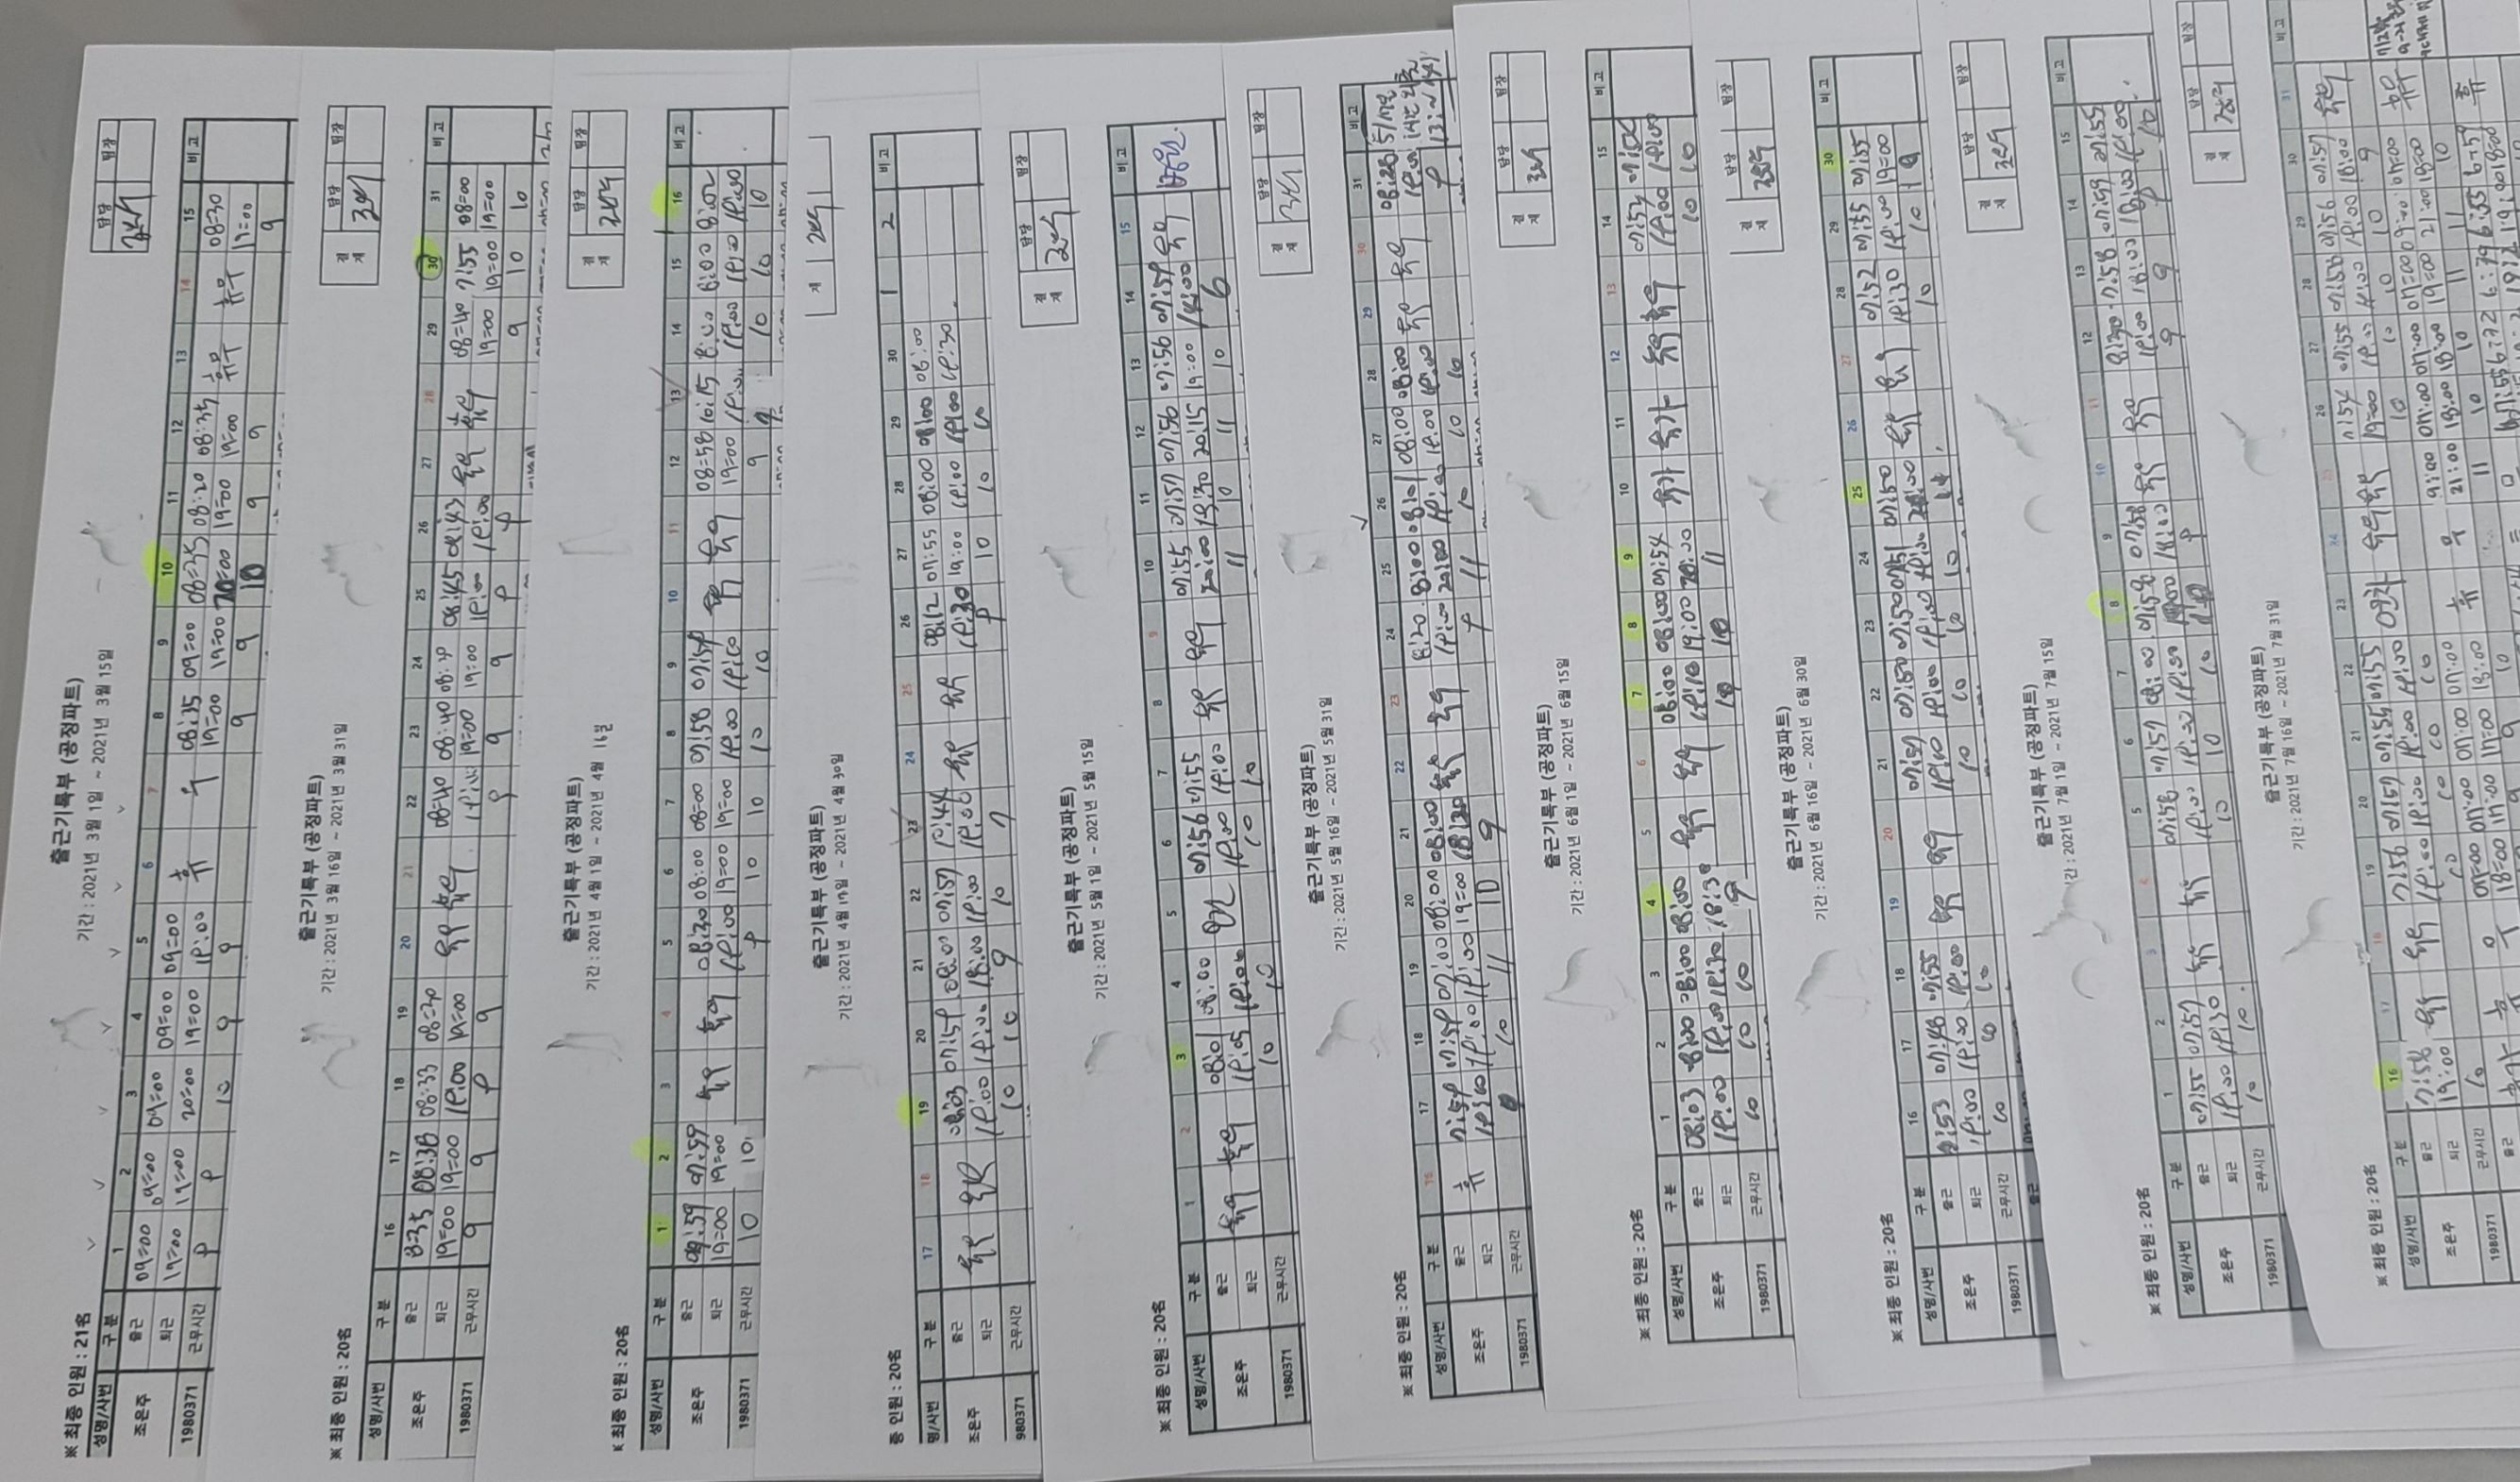 출근기록부 (공정파트)
기간 : 2021년 3월 1일 ~ 2021년 3월 15일
※ 최종 인원 : 21名
담당 팀장
성명/사번 구 분 1 2 3 4 5 6 7 8 9 10 11 12 13 14 15 비 고
조은주 출근 09=00 09=00 09=00 09=00 09=00 휴 무 08:35 09=00 08=35 08:20 08:35 휴무 휴무 08=30
퇴근 19=00 19=00 20=00 19=00 19:00 19=00 19=00 20=00 19=00 19=00 19=00
1980371 근무시간 9 9 10 9 9 9 9 10 9 9 9
출근기록부 (공정파트)
기간 : 2021년 3월 16일 ~ 2021년 3월 31일
※ 최종 인원 : 20名
결재 담당 팀장
성명/사번 구 분 16 17 18 19 20 21 22 23 24 25 26 27 28 29 30 31 비 고
조은주 출근 8=35 08:38 08:33 08=30 휴무 휴무 08=40 08:40 08:30 08:45 08:43 휴무 휴무 08=40 7:55 08=00
퇴근 19=00 19=00 19:00 19=00 19:00 19=00 19:00 19:00 19:00 19=00 19=00 19=00
1980371 근무시간 9 9 9 9 9 9 9 9 9 9 10 10
출근기록부 (공정파트)
기간 : 2021년 4월 1일 ~ 2021년 4월 16일
※ 최종 인원 : 20名
결재 담당 팀장
성명/사번 구 분 1 2 3 4 5 6 7 8 9 10 11 12 13 14 15 16 비 고
조은주 출근 07:59 07:59 휴무 휴무 08:30 08:00 08=00 07:58 07:59 휴무 휴무 08=58 10:15 8:00 8:00 8:02
퇴근 19=00 19=00 19:00 19=00 19=00 19:00 19:00 19=00 19:00 19:00 19:00 19:00
1980371 근무시간 10 10 9 10 10 10 10 9 10 10 10
출근기록부 (공정파트)
기간 : 2021년 4월 17일 ~ 2021년 4월 30일
재
종 인원 : 20名
명/사번 구 분 17 18 19 20 21 22 23 24 25 26 27 28 29 30 1 2 비 고
조은주 출근 휴무 휴무 08:03 07:59 08:00 07:57 10:44 휴무 휴무 08:12 07:55 08:00 08:00 08:00
퇴근 19:00 19:00 18:00 19:00 19:00 19:30 19:00 19:00 19:00 19:30
980371 근무시간 10 10 9 10 7 9 10 10 10
출근기록부 (공정파트)
기간 : 2021년 5월 1일 ~ 2021년 5월 15일
※ 최종 인원 : 20名
결재 담당 팀장
성명/사번 구 분 1 2 3 4 5 6 7 8 9 10 11 12 13 14 15 비 고
조은주 출근 휴무 휴무 08:01 08:00 07:56 07:55 휴무 휴무 07:55 07:57 07:56 07:56 07:59 휴무
퇴근 19:05 19:00 19:00 19:00 20:00 19:30 20:15 19:00 14:00
1980371 근무시간 10 10 10 10 11 10 11 10 6
출근기록부 (공정파트)
기간 : 2021년 5월 16일 ~ 2021년 5월 31일
※ 최종 인원 : 20名
결재 담당 팀장
성명/사번 구 분 16 17 18 19 20 21 22 23 24 25 26 27 28 29 30 31 비 고
조은주 출근 휴 7:59 07:59 07:00 08:00 08:00 휴무 휴무 8:20 8:00 08:01 08:00 08:00 휴무 휴무 08:28
퇴근 19:00 19:00 19:00 19=00 18:30 19:00 20:00 19:00 19:00 19:00 19:00
1980371 근무시간 10 11 10 9 9 11 10 10 10 9
출근기록부 (공정파트)
기간 : 2021년 6월 1일 ~ 2021년 6월 15일
※ 최종 인원 : 20名
결재 담당 팀장
성명/사번 구 분 1 2 3 4 5 6 7 8 9 10 11 12 13 14 15 비 고
조은주 출근 08:03 08:00 08:00 08:00 휴무 휴무 08:00 08:00 07:54 휴가 휴가 휴무 휴무 07:53
퇴근 19:00 19:00 19:30 18:30 19:10 19:00 20:00 19:00 19:00
1980371 근무시간 10 10 10 9 10 10 11 10 10
출근기록부 (공정파트)
기간 : 2021년 6월 16일 ~ 2021년 6월 30일
※ 최종 인원 : 20名
결재 담당 팀장
성명/사번 구 분 16 17 18 19 20 21 22 23 24 25 26 27 28 29 30 비 고
조은주 출근 7:53 07:48 07:55 휴무 휴무 07:57 07:50 07:50 07:51 07:50 휴무 휴무 07:52 07:55 07:55
퇴근 19:00 19:00 19:00 19:00 19:00 19:00 19:00 19:30 19:00 19=00
1980371 근무시간 10 10 10 10 10 10 10 10 10 10
출근
출근기록부 (공정파트)
기간 : 2021년 7월 1일 ~ 2021년 7월 15일
※ 최종 인원 : 20名
결재 담당 팀장
성명/사번 구 분 1 2 3 4 5 6 7 8 9 10 11 12 13 14 15 비 고
조은주 출근 07:55 07:57 휴무 휴무 07:58 07:57 08:00 07:58 07:58 휴무 휴무 8:30 7:58 07:59 07:55
퇴근 19:00 19:30 19:00 19:00 19:00 18:00 19:00 18:00 18:00 19:00
1980371 근무시간 10 10 10 10 10 9 9 9 9 10
출근기록부 (공정파트)
기간 : 2021년 7월 16일 ~ 2021년 7월 31일
※ 최종 인원 : 20名
결재 담당 팀장
성명/사번 구 분 16 17 18 19 20 21 22 23 24 25 26 27 28 29 30 31 비 고
조은주 출근 7:58 휴무 휴무 7:56 07:57 07:55 07:55 연차 휴무 휴무 7:54 07:55 07:58 07:56 07:57 휴무
퇴근 19:00 19:00 19:00 19:00 19:00 19=00 19:00 19:00 19:00 18:00
1980371 근무시간 10 10 10 10 10 10 10 10 10 9
출근 휴가 휴 무 07=00 07:00 07:00 07:00 휴 무 9:00 07:00 07:00 07=00 09:00 07=00 휴무
18=00 17:00 17=00 18:00 21:00 18:00 18:00 19=00 21:00 18=00
9 9 10 11 10 10 11 11 10